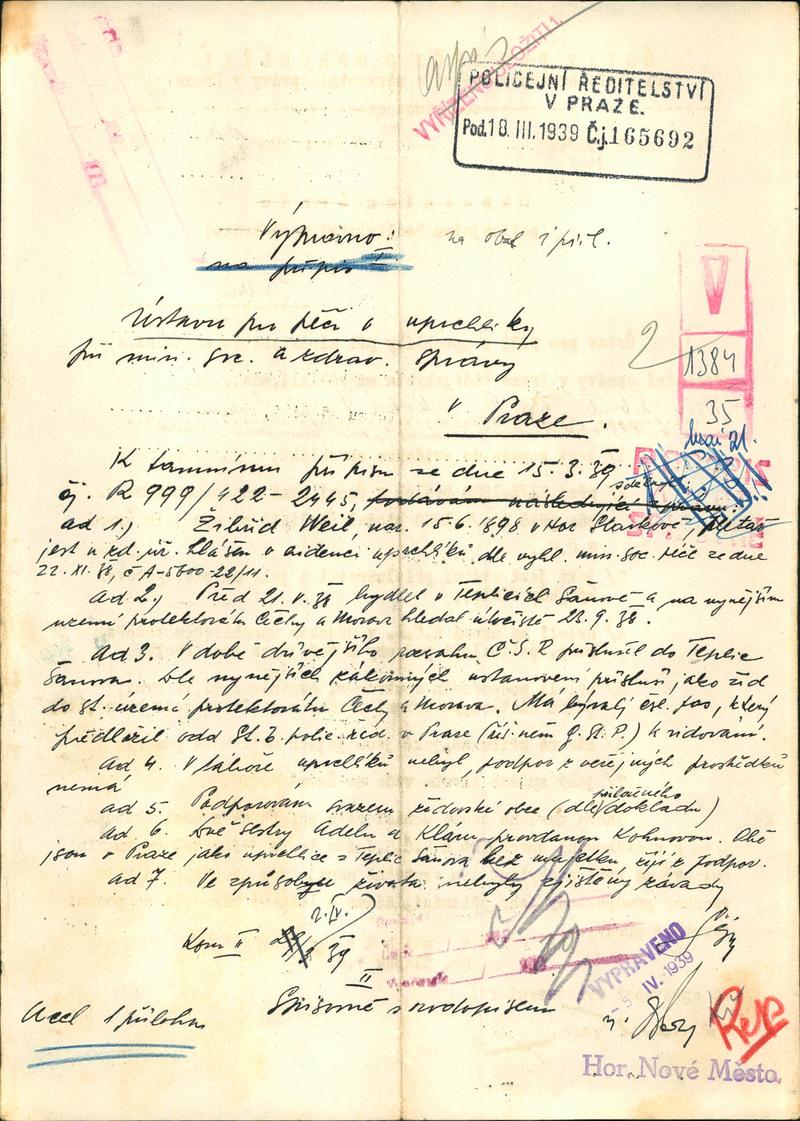 VYŘÍZENO ULOŽITI
POLICEJNÍ ŘEDITELSTVÍ
V PRAZE.
Pod. 18. III. 1939 Č.j. 165692
Výpravno: na obal 1 příl.
na přípis
Ústavu pro péči o uprchlíky
při min. soc. a zdrav. správy
v Praze.
2
1384
35
21.
K tamnímu přípisu ze dne 15.3.39
čj. R 999/422-2445, podávám následující zprávu:
ad 1.) Weil, nar. 15.6.1898 v Hor.
jest u zd. úř. hlášen v evidenci uprchlíků dle vyhl. min. soc. péče ze dne
22. XI. 38, č A-5600-22/11.
Ad 2.) Před 21. V. 38 bydlel v Teplicích Šanově a na nynějším
území protektorátu Čechy a Morava hledal útočiště 22. 9. 38.
Ad 3. V době dřívějšího rozsahu Č.S.R příslušel do Teplic
Šanova. Dle nynějších zákonných ustanovení přísluší jako žid
do st. území protektorátu Čechy a Morava. Má bývalý čsl. pas, který
předložil odd. St. b. polic. řed. v Praze (říš. něm. G. St. P.) k vidování.
ad 4. V táboře uprchlíků nebyl, podpor z veřejných prostředků
nemá
ad 5. Podporován svazem židovské obce (dle přiloženého dokladu)
ad 6. Dvě sestry Adelu a Kláru provdanou Kohnovou. Obě
jsou v Praze jako uprchlice z Teplic Šanova bez majetku žijí z podpor.
ad 7. Ve způsobu života nebyly zjištěny závady
2. IV.
Kom II 39
VYPRAVENO
5 IV. 1939
II
Spisovně s rodopisem
Accl 1 příloha
Hor. Nové Město.